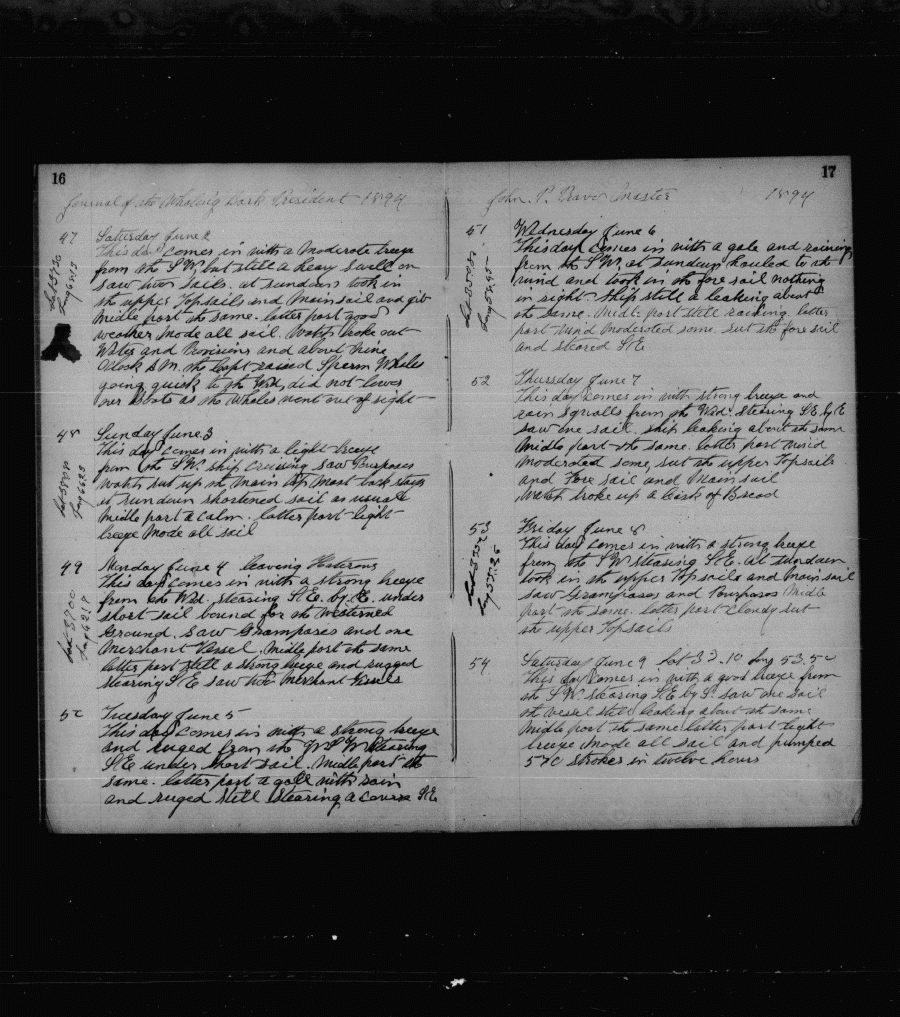 16
Journal of the Whaling Bark President 1894
47 Saturday June 2
This day comes in with a Moderate breeze
from the S W, but still a heavy swell on
saw two sails. at sundown took in
the upper Topsails and Mainsail and gib
Midle part the same. latter part good
weather Made all sail. Watch broke out
Water and Provisions and about Nine
Oclock A M. the Capt raised Sperm Whales
going quick to the Wd, did not lower
our Boats as the Whales went out of sight
48 Sunday June 3
This day comes in with a light breeze
from the S W. ship cruising saw Pourposes
Watch set up the Main Top Mast back stays
at sundown shortened sail as usual
Midle part a calm. latter part light
breeze Made all sail
49 Monday June 4 leaving Hatteras
Lat 37.00
This day comes in with a strong breeze
from the Wd. stearing S E. by E. under
short sail bound for the Westerned
Ground. Saw Grampases and one
Merchant Vessel. Midle part the same
latter part still a strong breeze and rugged
stearing S E saw two Merchant Vessels
50 Tuesday June 5
This day comes in with a strong breeze
and ruged from the W S W stearing
S E under short sail. Midle part the
same. latter part a gale with rain
and ruged still stearing a course S E
17
John. P. Master 1894
51 Wednesday June 6
This day comes in with a gale and raining
from the S W. at sundown hauled to the
wind and took in the fore sail nothing
in sight. Ship still a leaking about
the same. Midle part still raining. latter
part wind moderated some. sut the fore sail
and steared S E
52 Thursday June 7
This day comes in with strong breeze and
rain squalls from the Wd. stearing S E. by E
saw one sail. ship leaking about the same
Midle part the same. latter part wind
moderated some, sut the upper Topsails
and Fore sail and Main sail
Watch broke up a Cask of Bread
53 Friday June 8
This day comes in with a strong breeze
from the S W stearing S E. At sundown
took in the upper Topsails and Main sail
saw Grampases and Pourposes Midle
part the same. latter part Cloudy sut
the upper Topsails
54 Saturday June 9 Lat 33.10 Long 53.50
This day comes in with a good breeze from
the S W. stearing S E by S. saw one sail
the vessel still leaking about the same
Midle part the same latter part light
breeze Made all sail and pumped
570 strokes in twelve hours